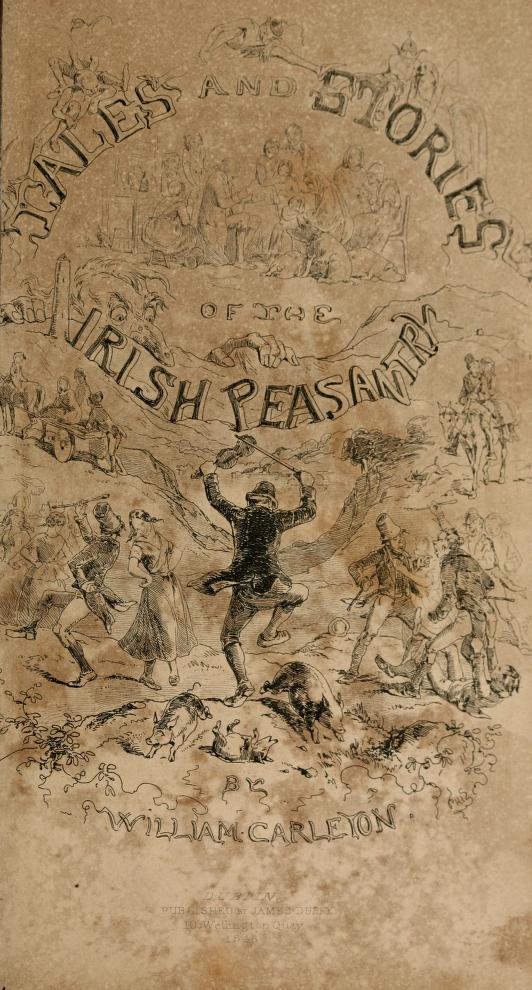 TALES AND STORIES
OF THE
IRISH PEASANTRY
BY
WILLIAM CARLETON
DUBLIN
PUBLISHED BY JAMES DUFFY
10 Wellington Quay